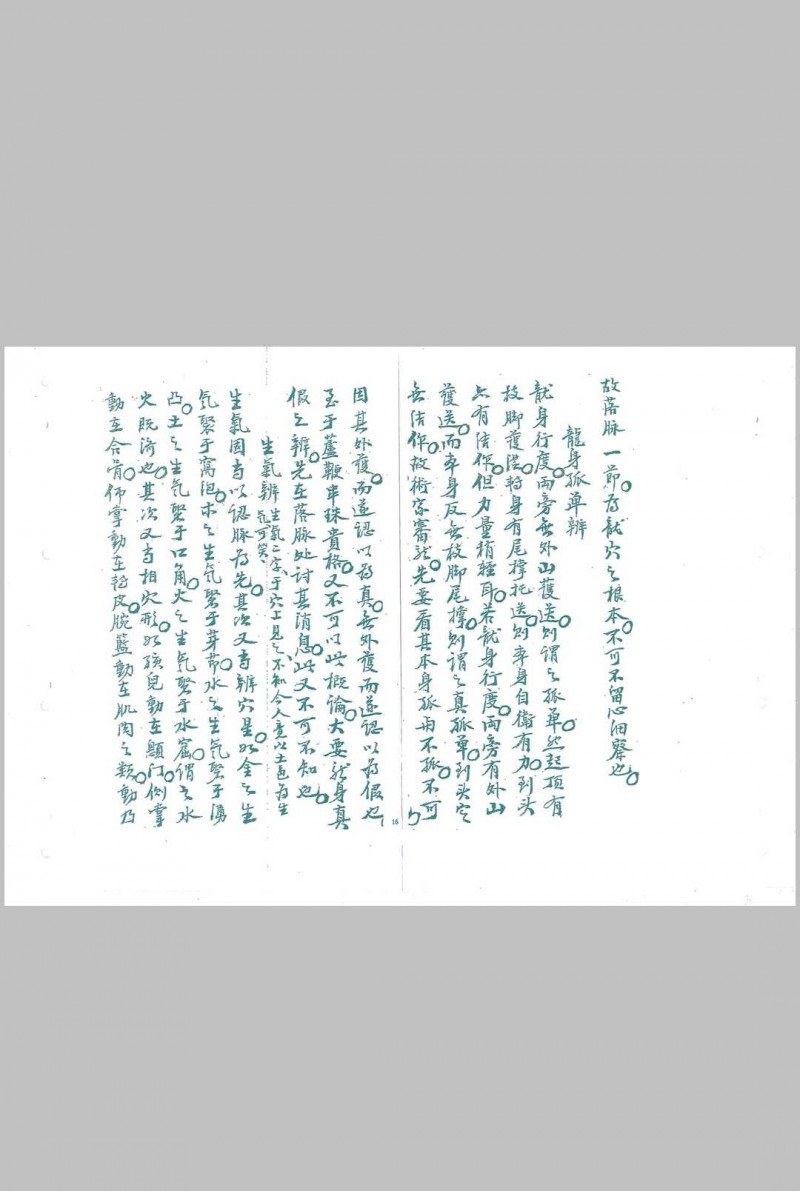 故落脉一節。为龍穴之根本。不可不留心細察也。
龍身孤单辨
龍身行度。兩旁無外山護送。則謂之孤单。然起頂有
枝脚護從。好身有尾撑托送。則本身自衛有力。到头
亦有结作。但力量稍轻耳。若龍身行度。兩旁有外山
護送。而本身反無枝脚尾撑。則謂之真孤单。到头定
無结作。故術家審龍。先要看其本身孤與不孤。不可
因其外護。而遂認以为真。無外護而遂認以为假也。
至于蘆鞭串珠貴格。又不可以此概論。大要龍身真
假之辨。先在落脉处討其消息。此又不可不知也。
生氣辨 生氣二字、于穴上見之、不知今人竟以土色为生
氣、可笑、
生氣固当以認脉为先。其次又当辨穴星。如金之生
氣聚于窩泡。木之生氣聚于芽節。水之生氣聚于湧
凸。土之生氣聚于口角。火之生氣聚于水窟。謂之水
火既济也。其次又当相穴形。如孩兒動在顖门。側掌
動在合骨。仰掌動在。腕籃動在肌肉之類。動乃
16